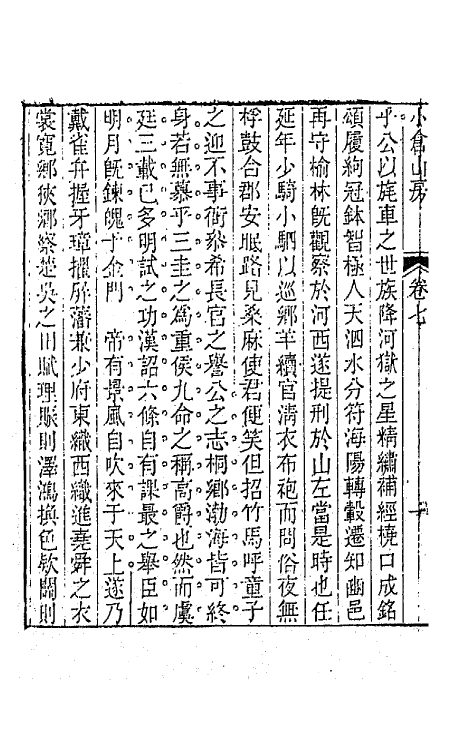 小倉山房
卷七
乎公以旄車之世族降河獄之星精繡補經橈口成銘
頌履絇冠鉢智極人天泗水分符海陽轉轂遷知幽邑
再守榆林旣觀察於河西遂提刑於山左當是時也任
延年少騎小駟以巡鄉羊續官淸衣布袍而問俗夜無
桴鼓合郡安眠路見桑麻使君便笑但招竹馬呼童子
之迎不事銜黍希長官之譽公之志桐鄉渤海皆可終
身若無慕乎三圭之為重侯九命之稱高爵也然而虞
廷三載已多明試之功漢詔六條自有課最之舉臣如
明月旣鍊魄于金門 帝有景風自吹來于天上遂乃
戴雀弁握牙璋擢屏藩兼少府東織西織進堯舜之衣
裳寬鄉狹鄉察楚吳之田賦理賑則澤鴻換色欸關則